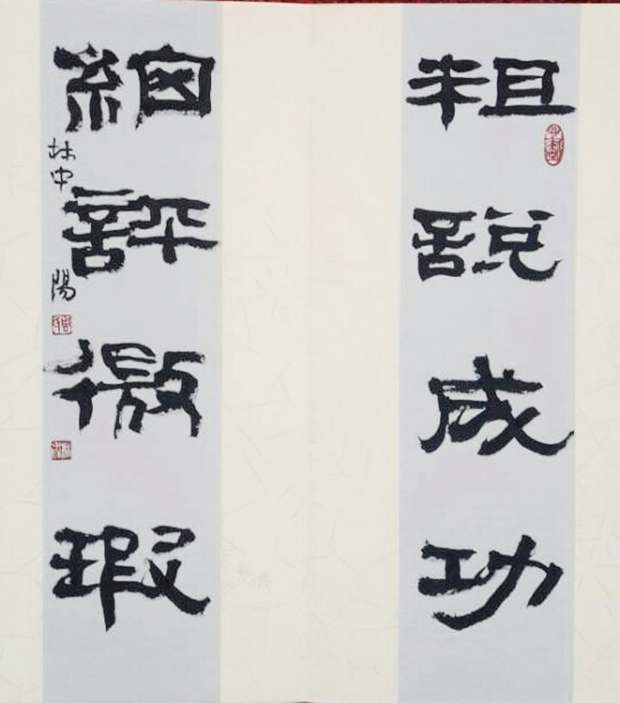 粗說成功
細評微瑕
林中陽